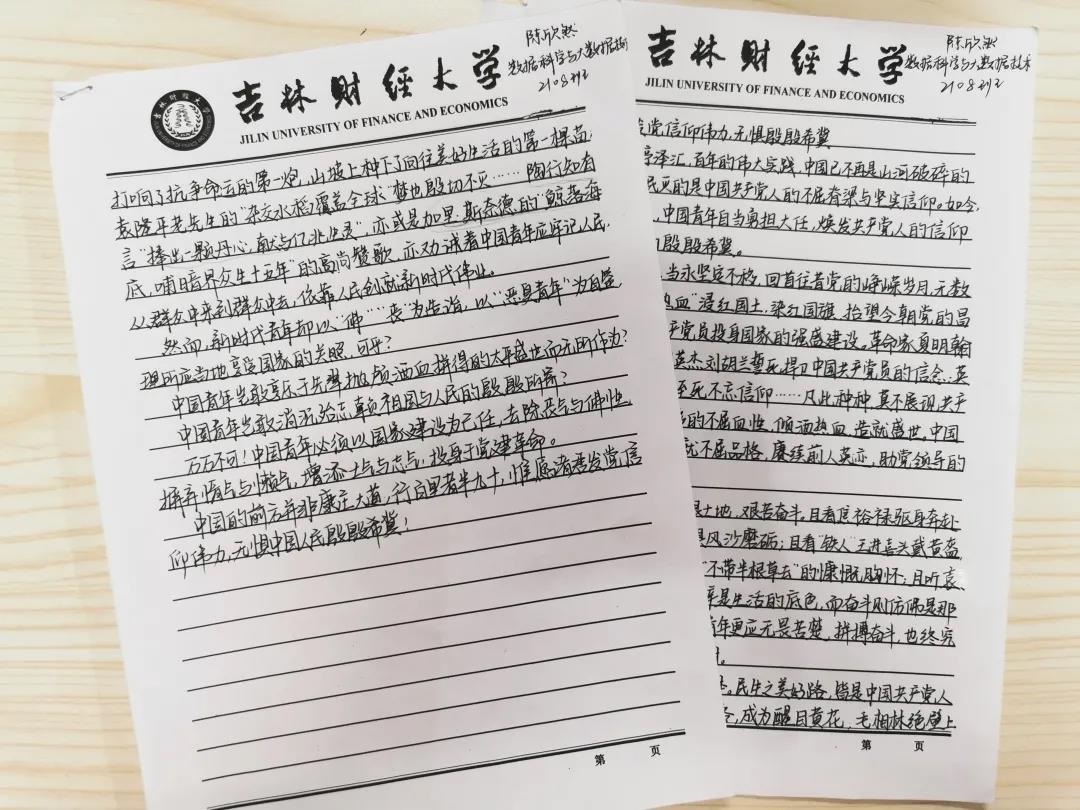 吉林财经大学
JILIN UNIVERSITY OF FINANCE AND ECONOMICS
陈欣然
数据科学与大数据技
2108班
打响了抗争命运的第一炮,山坡上种下了向往美好生活的第一棵苗;
袁隆平老先生的“杂交水稻覆盖全球”梦也殷切不灭……陶行知有
言“捧出一颗丹心,献与亿兆生灵”,亦或是加里·斯奈德的“鲸落海
底,哺暗界众生十五年”的高尚赞歌,亦劝诫着中国青年应牢记人民,
从群众中来到群众中去,依靠人民创就新时代伟业。
然而,新时代青年却以“佛”“丧”为告诒,以“恶臭青年”为自
理所应当地享受国家的关照,可乎?
中国青年岂敢享乐于先辈抛颅洒血拼得的太平盛世而无所作为?
中国青年岂敢消沉殆志,辜负祖国与人民的殷殷所寄?
万万不可!中国青年必须以国家建设为己任,去除丧气与佛性,
摒弃惰气与懒气,增添士气与志气,投身于党建革命。
中国的前方并非康庄大道,行百里者半九十,惟愿诸君发党信
仰伟力,无惧中国人民殷殷希冀!
第 页
吉林财经大学
JILIN UNIVERSITY OF FINANCE AND ECONOMICS
陈欣然
数据科学与大数据技术
2108班
党信仰伟力,无惧殷殷希冀
泽汇,百年的伟大实践,中国已不再是山河破碎的
民灭的是中国共产党人的不屈脊梁与坚实信仰。如今,
,中国青年自当勇担大任,焕发共产党人的信仰
殷殷希冀。
当永坚定不移,回首往昔党的峥嵘岁月,无数
热血”浸红国土,染红国旗,抬望今朝党的昌
产党员投身国家的强盛建设。革命家夏明翰
英杰刘胡兰誓死捍卫中国共产党员的信念;英
至死不忘信仰……凡此种种,莫不展现共产
的不屈血性,倾洒热血,造就盛世。中国
就不屈品格,赓续前人英亦,助党领导的
土地,艰苦奋斗。且看焦裕禄躯身奔赴
风沙磨砺;且看“铁人”王进喜头戴黄盔
“不带半根草去”的慷慨胸怀;且听袁
是生活的底色,而奋斗则仿佛是那
青年更应无畏苦楚,拼搏奋斗,也终究
。民生之美好路,皆是中国共产党人
,成为醒目黄花,毛相林绝壁上
第 页